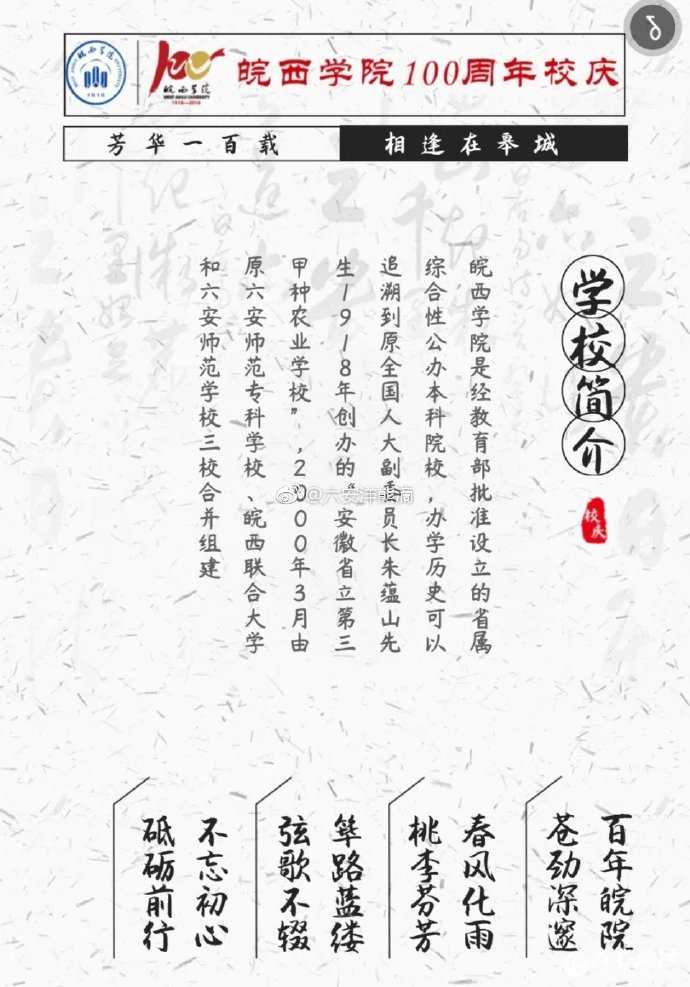 皖西学院
WEST ANHUI UNIVERSITY
1918—2018
皖西学院100周年校庆
芳华一百载
相逢在皋城
学校简介
校庆
皖西学院是经教育部批准设立的省属
综合性公办本科院校，办学历史可以
追溯到原全国人大副委员长朱蕴山先
生1918年创办的“安徽省立第三
甲种农业学校”，2000年3月由
原六安师范专科学校、皖西联合大学
和六安师范学校三校合并组建
百年皖院
苍劲深邃
春风化雨
桃李芬芳
筚路蓝缕
弦歌不辍
不忘初心
砥砺前行